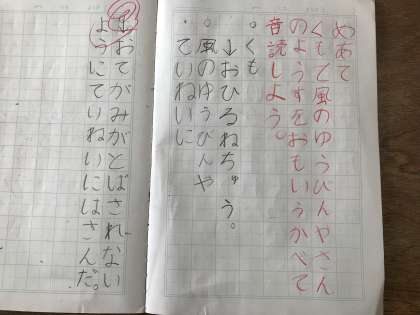 めあて
くもで風のゆうびんやさん
のようすをおもいうかべて
音読しよう。
。くも
↓おひるねちゅう。
。風のゆうびんや
・ていねいに
↓おてがみがとばされない
ようにていねいにはさんだ。